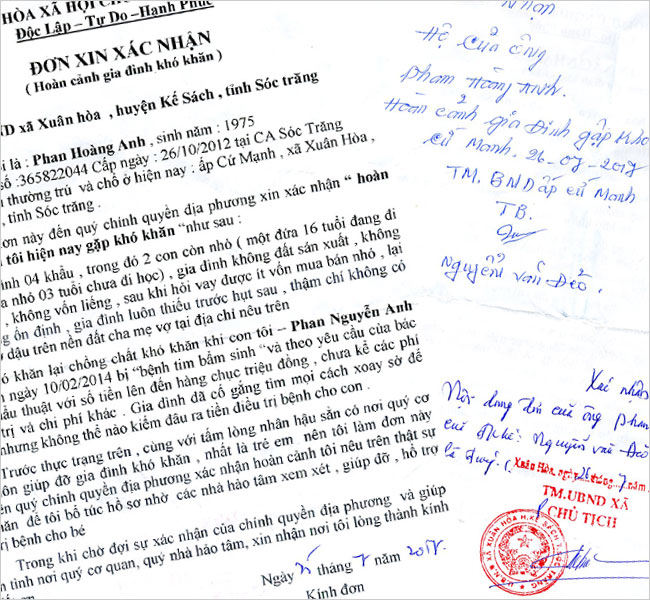 HÒA XÃ HỘI CH
Độc Lập – Tự Do – Hạnh Phúc
ĐƠN XIN XÁC NHẬN
( Hoàn cảnh gia đình khó khăn )
ND xã Xuân hòa , huyện Kế Sách , tỉnh Sóc trăng
i là : Phan Hoàng Anh , sinh năm : 1975
số :365822044 Cấp ngày : 26/10/2012 tại CA Sóc Trăng
thường trú và chỗ ở hiện nay : ấp Cứ Mạnh , xã Xuân Hòa ,
, tỉnh Sóc trăng .
ơn này đến quý chính quyền địa phương xin xác nhận “ hoàn
tôi hiện nay gặp khó khăn “như sau :
ình 04 khẩu , trong đó 2 con còn nhỏ ( một đứa 16 tuổi đang đi
a nhỏ 03 tuổi chưa đi học) , gia đình không đất sản xuất , không
, không vốn liếng , sau khi hỏi vay được ít vốn mua bán nhỏ , lại
g ổn định , gia đình luôn thiếu trước hụt sau , thậm chí không có
ở đậu trên nền đất cha mẹ vợ tại địa chỉ nêu trên
ó khăn lại chồng chất khó khăn khi con tôi – Phan Nguyễn Anh
n ngày 10/02/2014 bị “bệnh tim bẩm sinh “và theo yêu cầu của bác
ẩu thuật với số tiền lên đến hàng chục triệu đồng , chưa kể các phí
trị và chi phí khác . Gia đình đã cố gắng tìm mọi cách xoay sở để
nhưng không thể nào kiếm đâu ra tiền điều trị bệnh cho con .
Trước thực trạng trên , cùng với tấm lòng nhân hậu sẵn có nơi quý cơ
ôn giúp đỡ gia đình khó khăn , nhất là trẻ em nên tôi làm đơn này
ến quý chính quyền địa phương xác nhận hoàn cảnh tôi nêu trên thật sự
hăn để tôi bổ túc hồ sơ nhờ các nhà hảo tâm xem xét , giúp đỡ , hỗ trợ
ị bệnh cho bé
Trong khi chờ đợi sự xác nhận của chính quyền địa phương và giúp
n tình nơi quý cơ quan, quý nhà hảo tâm, xin nhận nơi tôi lòng thành kính
Ngày 25 tháng 7 năm 2017
Kính đơn
nhận
Hộ Của ông
Phan Hoàng Anh.
Hoàn cảnh gia Đình gặp Khó
cứ Mạnh. 26-07-2017
TM. BND ấp cứ Mạnh
TB.
Nguyễn văn Đẻo.
Xác nhận
Nội dung đơn của ông Phan
Nguyễn văn Đẻo
là đúng.
Xuân Hòa, ngày 26 tháng 7 năm
TM.UBND XÃ
CHỦ TỊCH
U.B.N.D XÃ XUÂN HÒA H.KẾ SÁCH T.SÓC TRĂNG